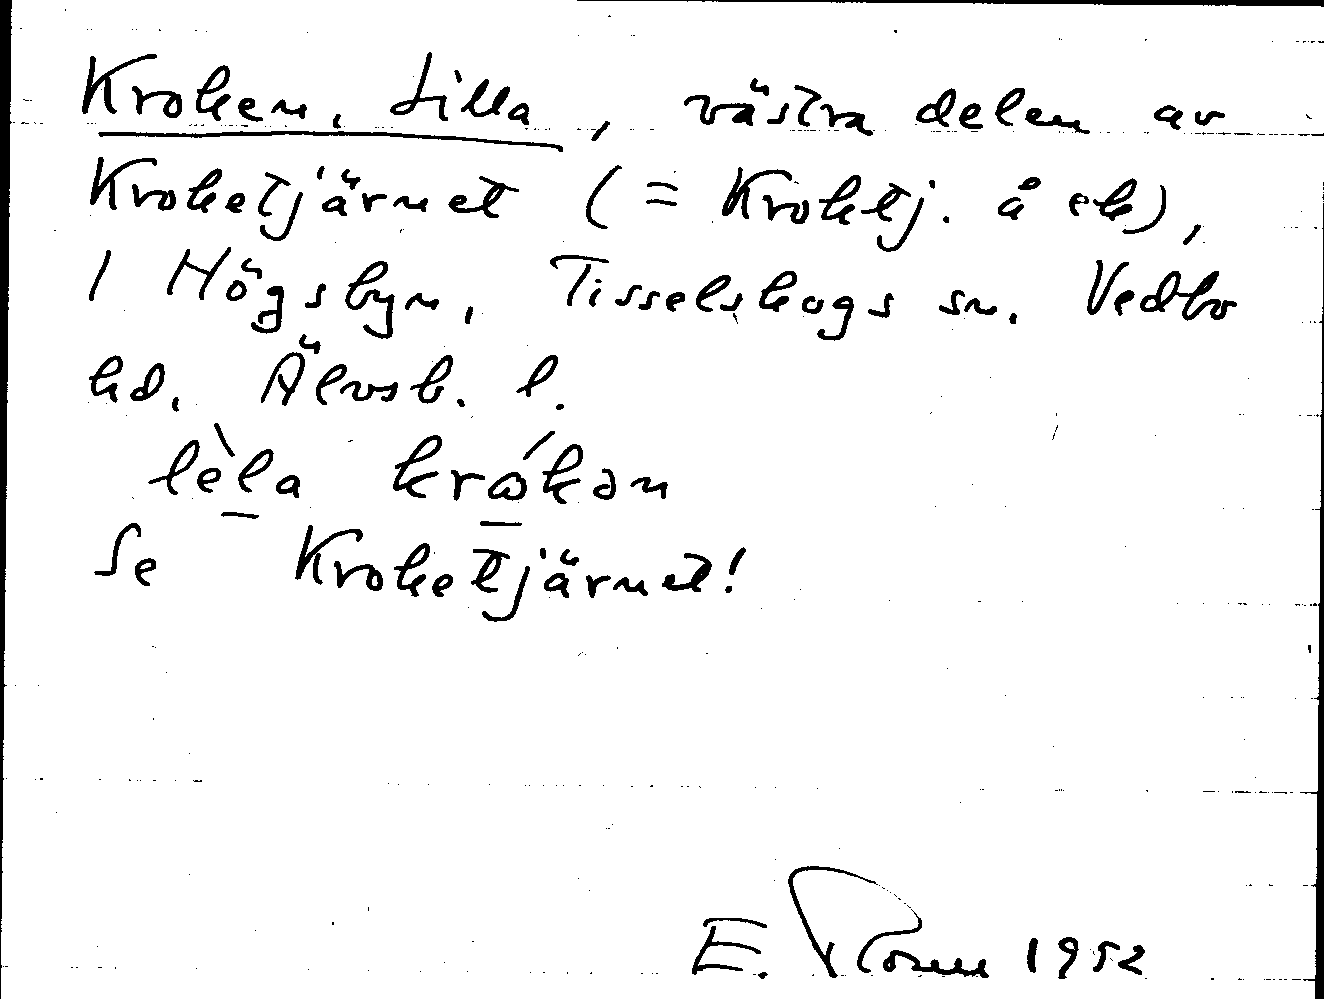 Kroken, Lilla, västra delen av
Kroketjärnet (= Kroktj. å ek),
i Högsbyn, Tisselskogs sn. Vedbo
hd. Älvsb. l.
lèla krókən
Se Kroketjärnet!
E. 1952